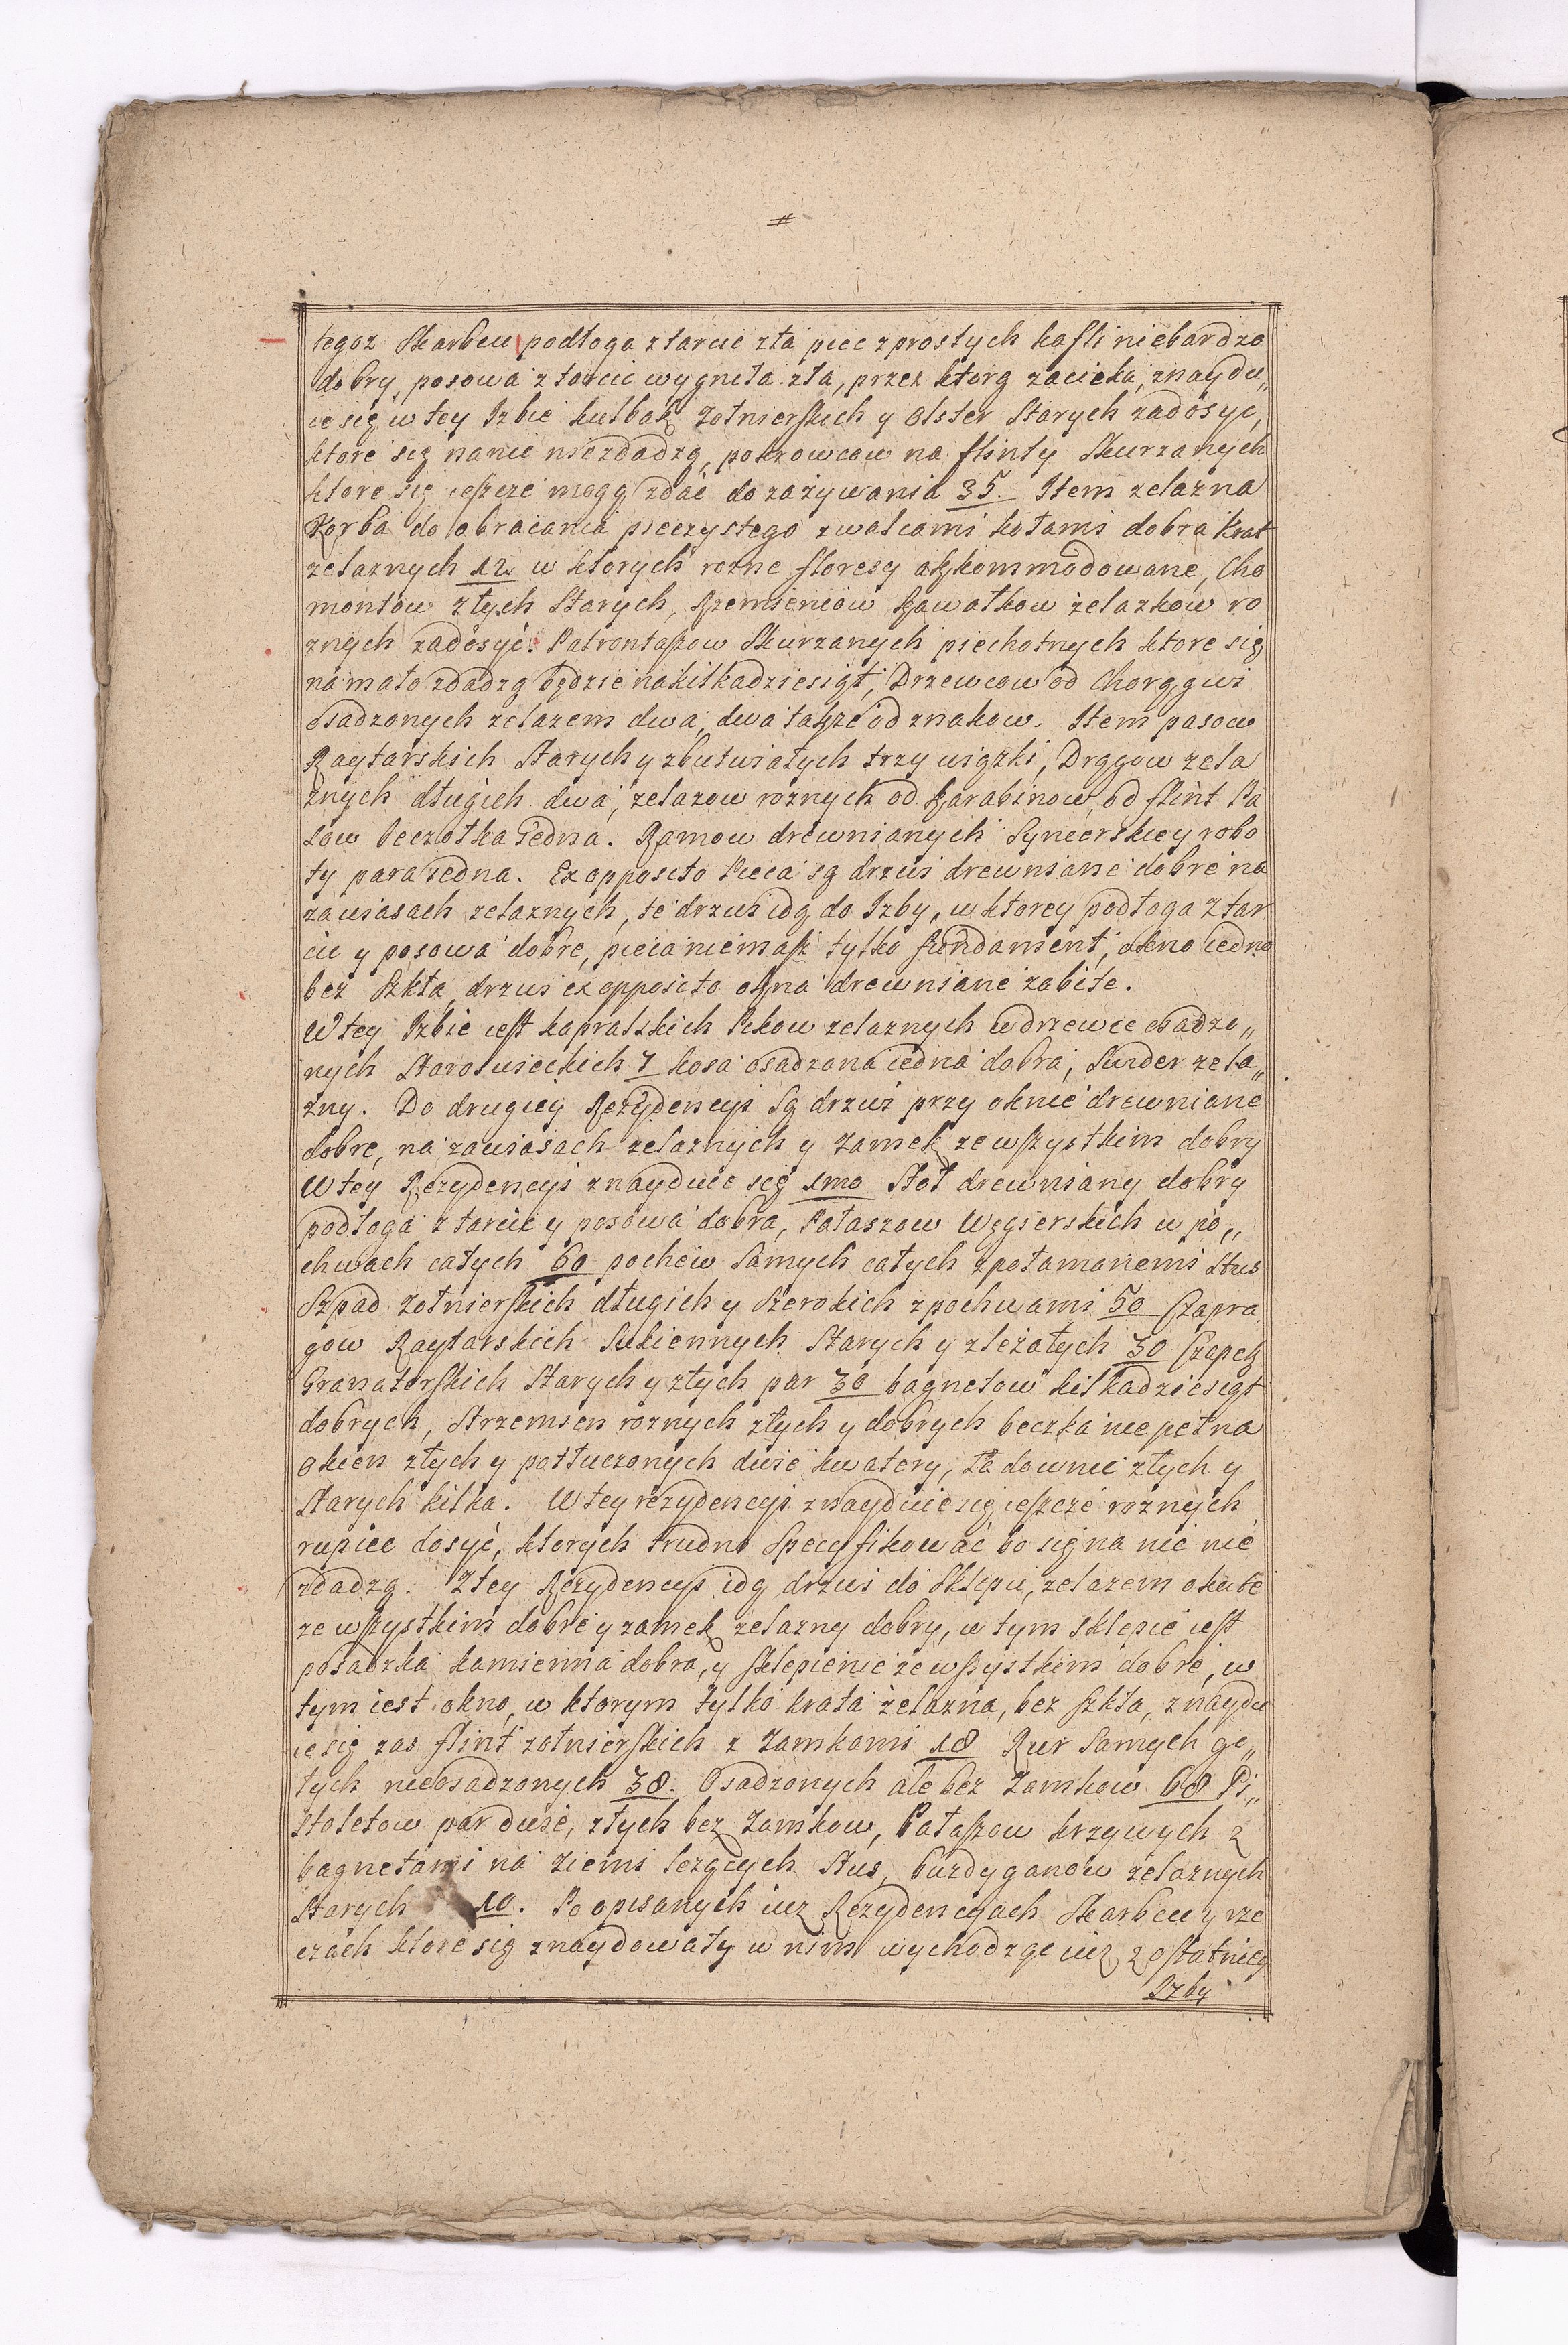 tegoz Skarbcu podłoga z tarcic zła piec z prostych kafli niebardzo
dobry, posowa z tarcic wygnieta zła, przez ktorą zacieka, znaydu„
ie się w tey Izbie kulbak Zołnierskich y Olster Starych zadosyc,
ktore się nanic niezdadzą, pokrowcow na flinty Skurzanych
ktore się ieszcze mogą zdać do zażywania 35. Item zelazna
Korba do obracania pieczystego z walcami kołami dobra krat
zelaznych 12 w ktorych rozne floresy akkommodowane, Cho
montow złych Starych, Rzemieniow kawałkow żelazkow ro
znych zadosyć. Patrontaszow Skurzanych piechotnych ktore się
na mało zdadzą będzie nakilkadziesiąt, Drzewcow od Chorągwi
osadzonych zelazem dwa, dwa takze od znakow. Item pasow
Raytarskich Starych y zbutwiałych trzy wiązki, Drągow zela
znych długich dwa, zelazow roznych od karabinow, od flint Pa
sow beczołka iedna. Ramow drewnianych Sznicerskiey robo
ty para iedna. Ex opposito Pieca są drzwi drewniane dobre na
zawiasach zelaznych, te drzwi idą do Izby, w ktorey podłoga z tar
cic y posowa dobre, pieca niemasz tylko fundament, okno iedno
bez Szkła, drzwi ex opposito okna drewniane zabite.
W tey Izbie iest kapralskich Pikow zelaznych w drzewce osadzo„
nych Staroswieckich 7 kosa osadzona iedna dobra, Swider zela„
zny. Do drugiey Rezydencyi Są drzwi przy oknie drewniane
dobre, na zawiasach zelaznych y zamek ze wszystkim dobry
W tey Rezydencyi znayduie się 1mo Stoł drewniany dobry
podłoga z tarcic y posowa dobra, Pałaszow Węgierskich w po„
chwach całych 60 pochew Samych całych z połamanemi Stus
Szpad Zołnierskich długich y Szerokich z pochwami 50 Czapra
gow Raytarskich Sukiennych Starych y zleżałych 30 Czapek
Granaterskich Starych y złych par 30 bagnetow kilkadziesiąt
dobrych, Strzemien roznych złych y dobrych beczka nie pełna
Okien złych y potłuczonych dwie kwatery, Ładownic złych y
Starych kilka. W tey rezydencyi znayduie się ieszcze roznych
rupiec dosyć, ktorych trudno Specyfikować bo się na nic nie
zdadzą. Z tey Rezydencyi idą drzwi do Sklepu, zelazem okute
ze wszystkim dobre y zamek zelazny dobry, w tym Sklepie iest
posadzka kamienna dobra, y sklepienie ze wszystkim dobre, w
tym iest okno, w ktorym tylko krata żelazna, bez szkła, znaydu
ie się zas flint zołnierskich z Zamkami 18 Rur Samych go„
łych nieosadzonych 38. Osadzonych ale bez Zamkow 68 Pi„
stoletow par dwie, złych bez Zamkow, Pałaszow krzywych z
bagnetami na Ziemi lezących Stus, buzdyganow żelaznych
Starych 10. Po opisanych iuz Rezydencyach Skarbcu y rze
czach ktore się znaydowały w nim wychodząc iuz z ostatniey
Izby